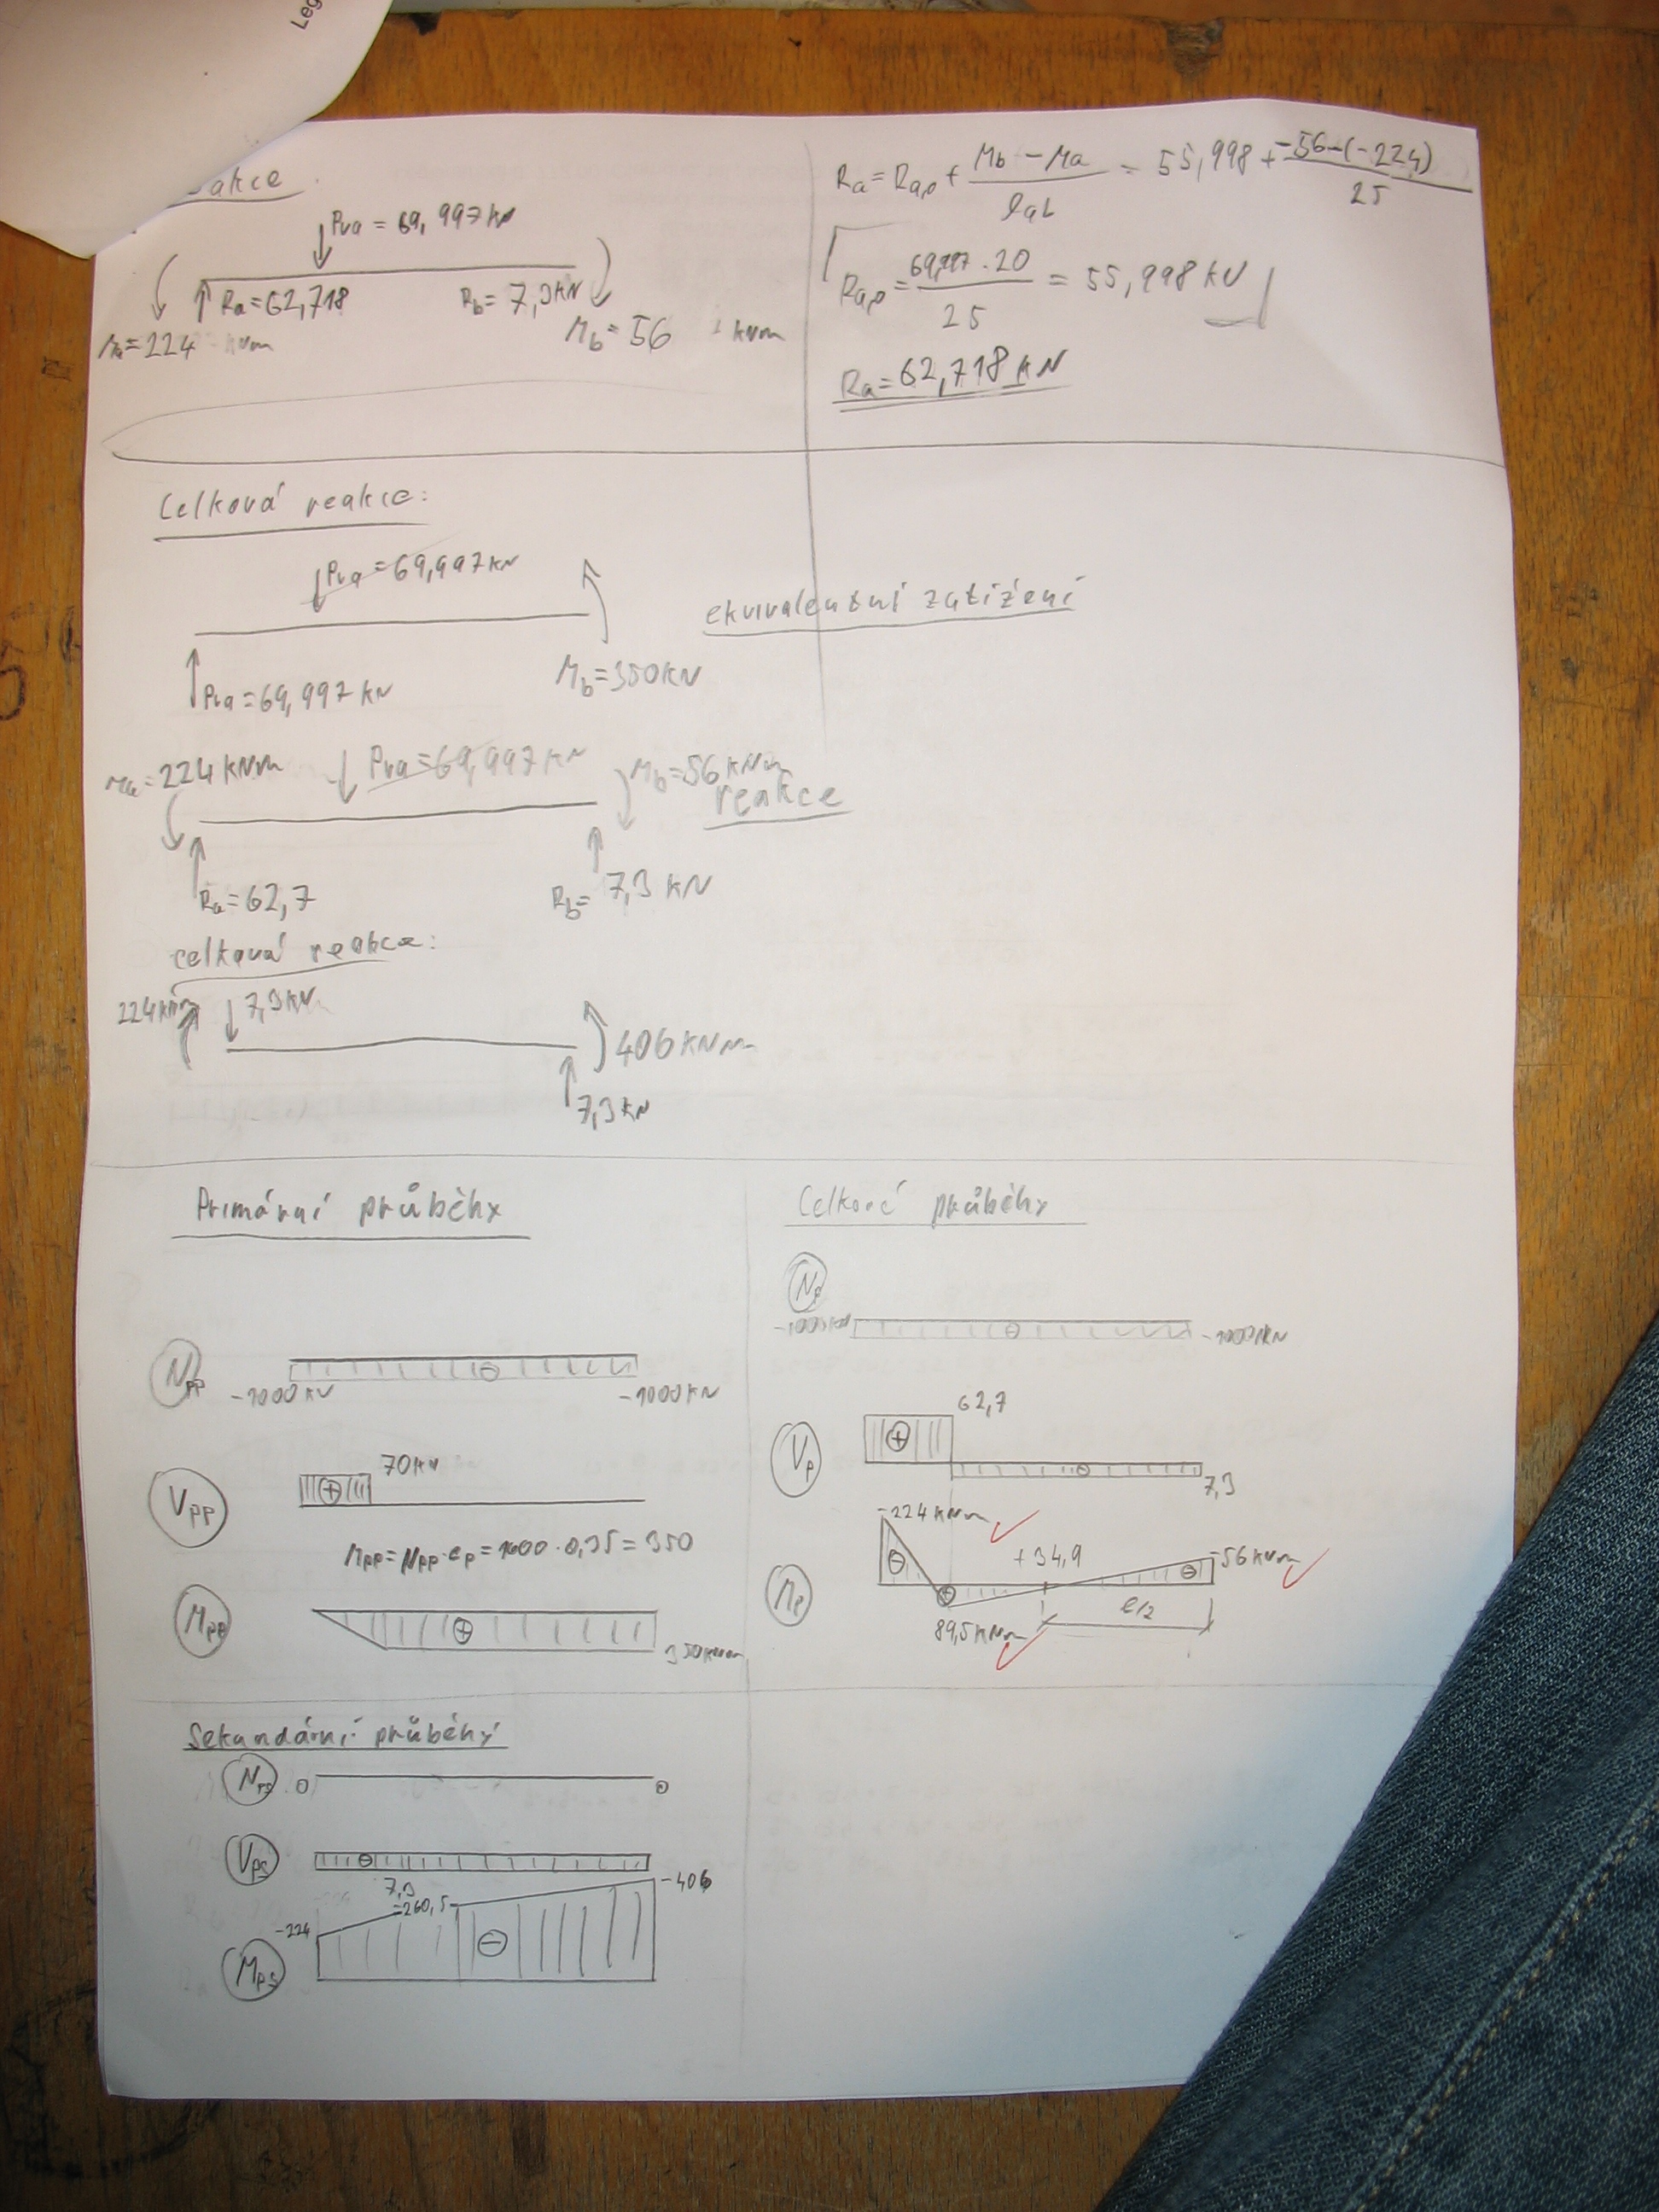 Leg
akce
Pva = 69,997 kN
Ra = 62,718
Rb = 7,3 kN
Ma = 224 kNm
Mb = 56 kNm
Ra = Ra,o + (Mb - Ma)/lab = 55,998 + (-56-(-224))/25
Ra,o = (69,997 · 20)/25 = 55,998 kN
Ra = 62,718 kN
Celková reakce:
Pva = 69,997 kN
ekvivalentní zatížení
Mb = 350 kN
Pva = 69,997 kN
Ma = 224 kNm
Pva = 69,997 kN
Mb = 56 kNm
reakce
Ra = 62,7
Rb = 7,3 kN
celková reakce:
224 kNm
7,3 kN
406 kNm
7,3 kN
Primární průběhy
Npp
-1000 kN
-1000 kN
Vpp
+
70 kN
Mpp = Npp · ep = 1000 · 0,35 = 350
Mpp
+
350 kNm
Celkové průběhy
Np
-1000 kN
-1000 kN
Vp
+
62,7
7,3
-224 kNm
+34,9
-56 kNm
Mp
l/2
89,5 kNm
Sekundární průběhy
Nps
0
0
Vps
7,3
-224
-260,5
-406
Mps